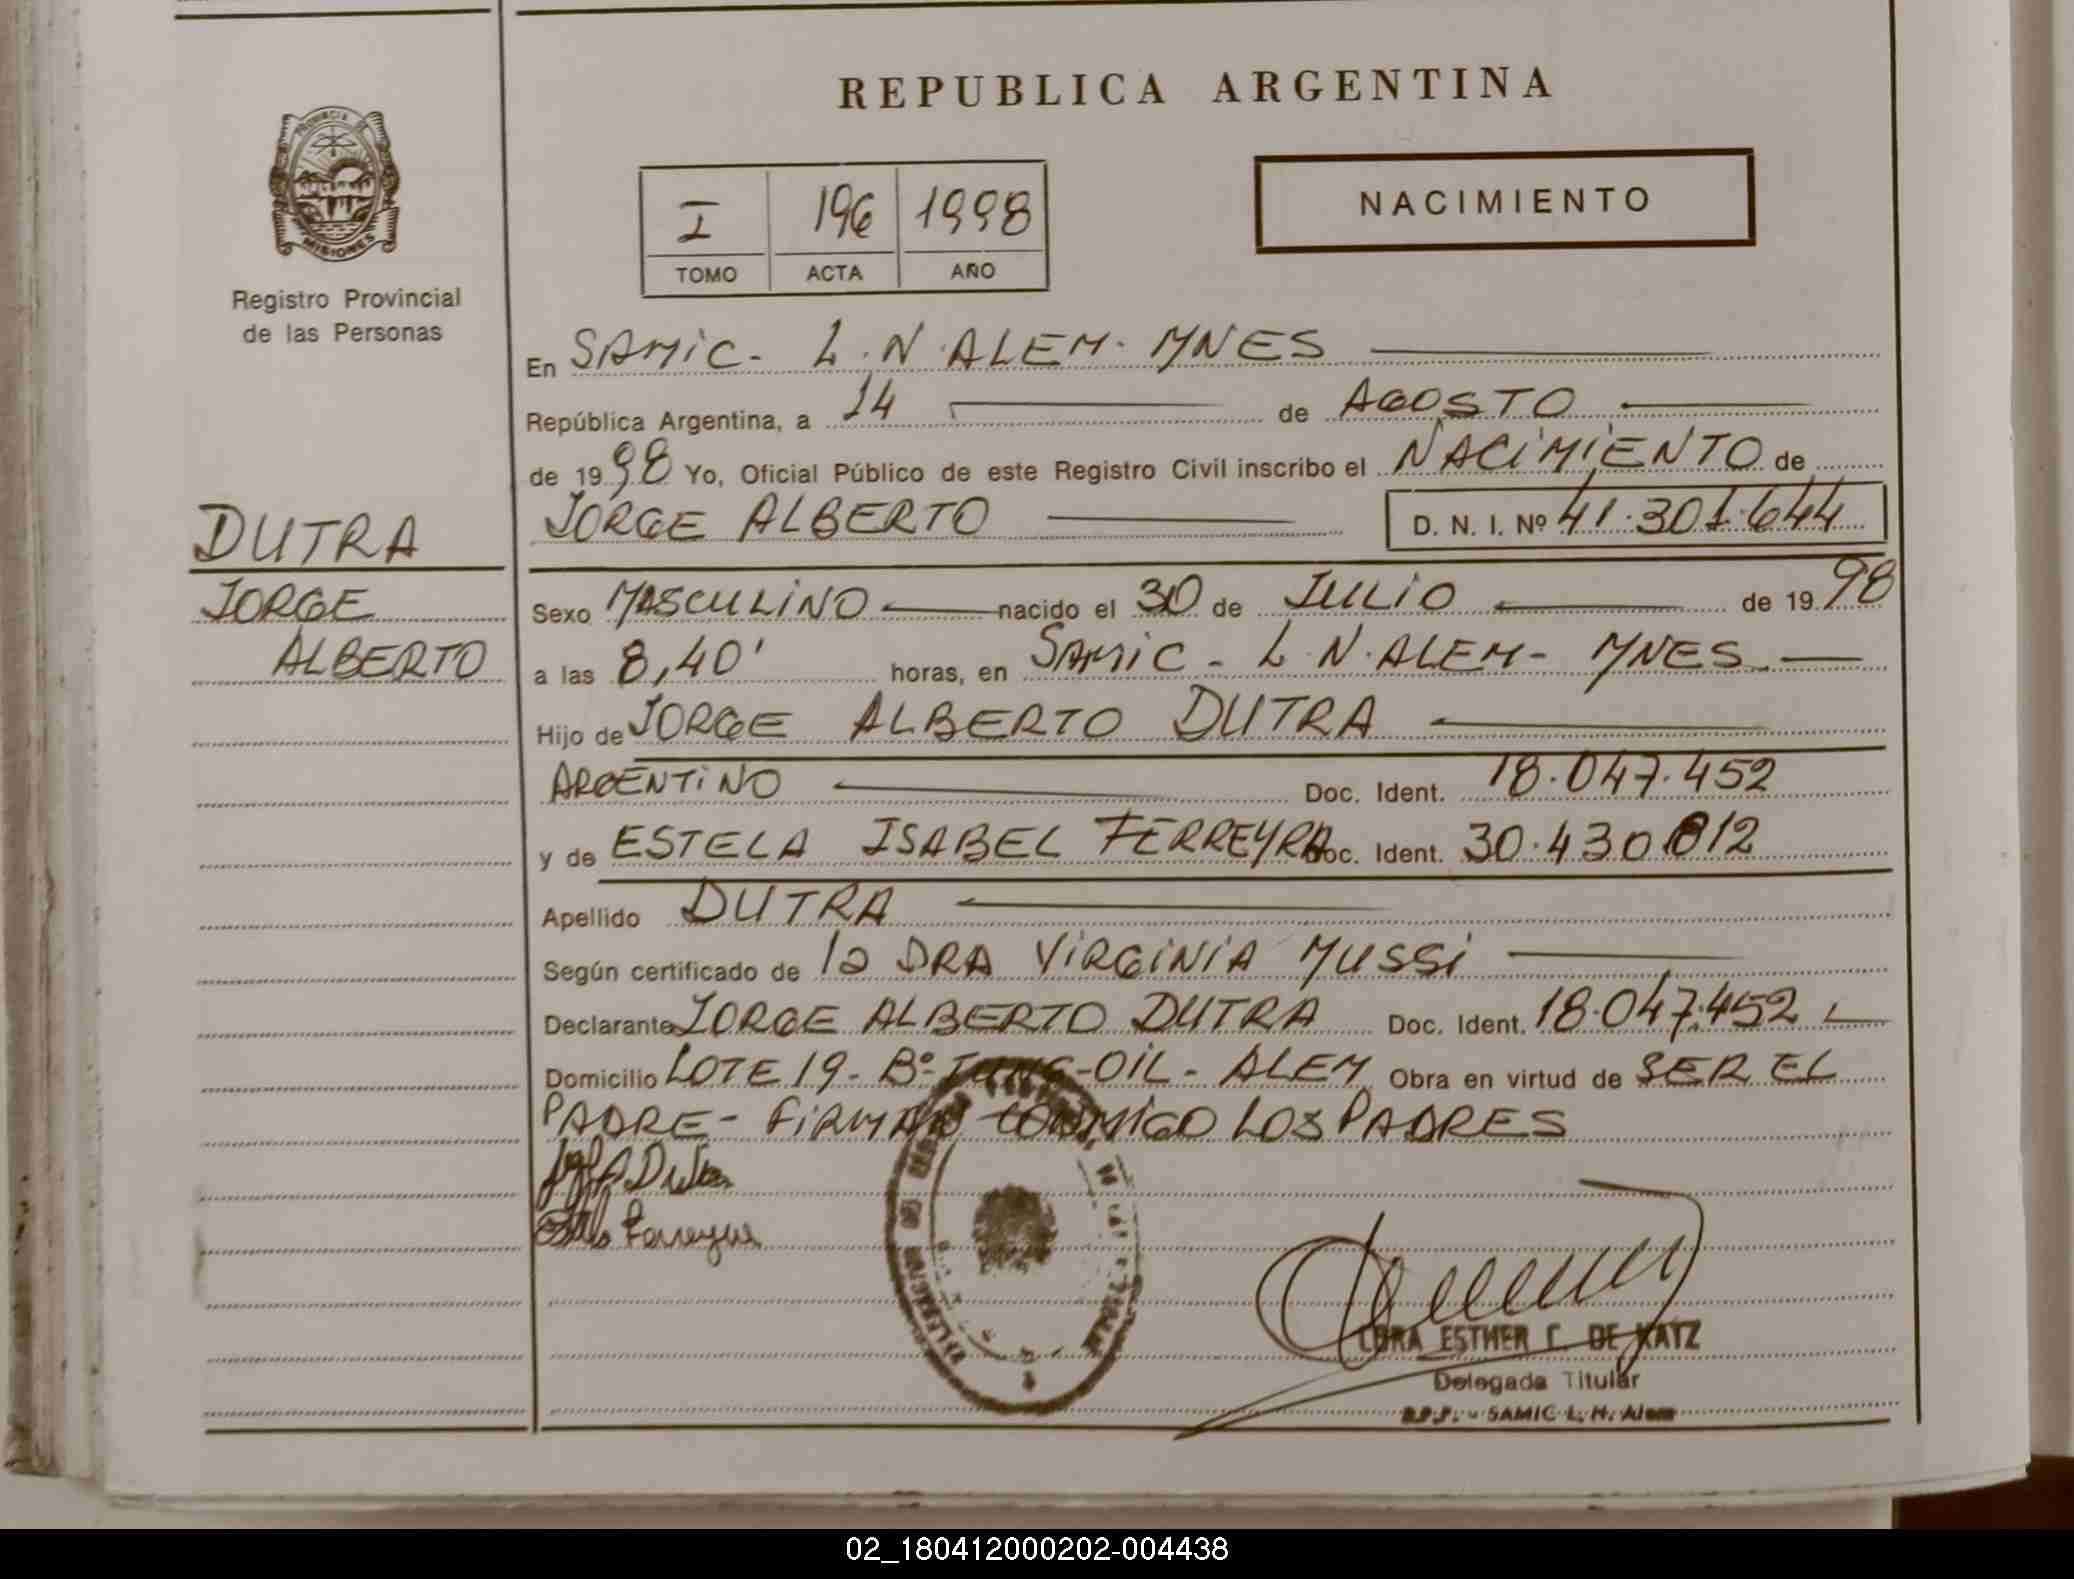 REPUBLICA ARGENTINA
PROVINCIA DE
MISIONES
Registro Provincial
de las Personas
I 196 1998
TOMO ACTA AÑO
NACIMIENTO
En SAMIC - L. N. ALEM - MNES
República Argentina, a 14 de AGOSTO
de 1998 Yo, Oficial Público de este Registro Civil inscribo el NACIMIENTO de
JORGE ALBERTO D. N. I. Nº 41.301.644
DUTRA
JORGE
ALBERTO
Sexo MASCULINO nacido el 30 de JULIO de 1998
a las 8,40' horas, en SAMIC - L. N. ALEM - MNES
Hijo de JORGE ALBERTO DUTRA
ARGENTINO Doc. Ident. 18.047.452
y de ESTELA ISABEL FERREYRA Doc. Ident. 30.430.812
Apellido DUTRA
Según certificado de la DRA VIRGINIA MUSSI
Declarante JORGE ALBERTO DUTRA Doc. Ident. 18.047.452
Domicilio LOTE 19 - Bº TUNG-OIL - ALEM Obra en virtud de SER EL
PADRE - FIRMAN CONMIGO LOS PADRES
Ferreyra
ESTHER C. DE KATZ
Delegada Titular
SAMIC L. N. Alem
02_180412000202-004438